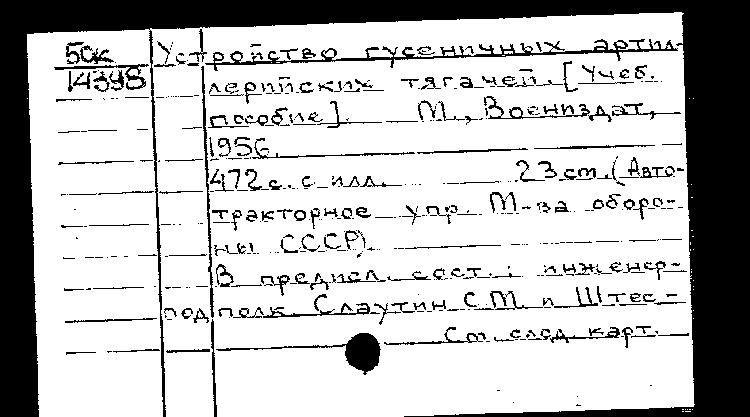 50к Устройство гусеничных артил-
14398 лерийских тягачей. [Учеб.
пособие]. М., Воениздат,
1956.
472 с. с илл. 23 cm. (Авто-
тракторное упр. М-ва оборо-
ны СССР).
В предисл. сост.: инженер-
подполк. Слаутин С.М. и Штес-
См. след. карт.